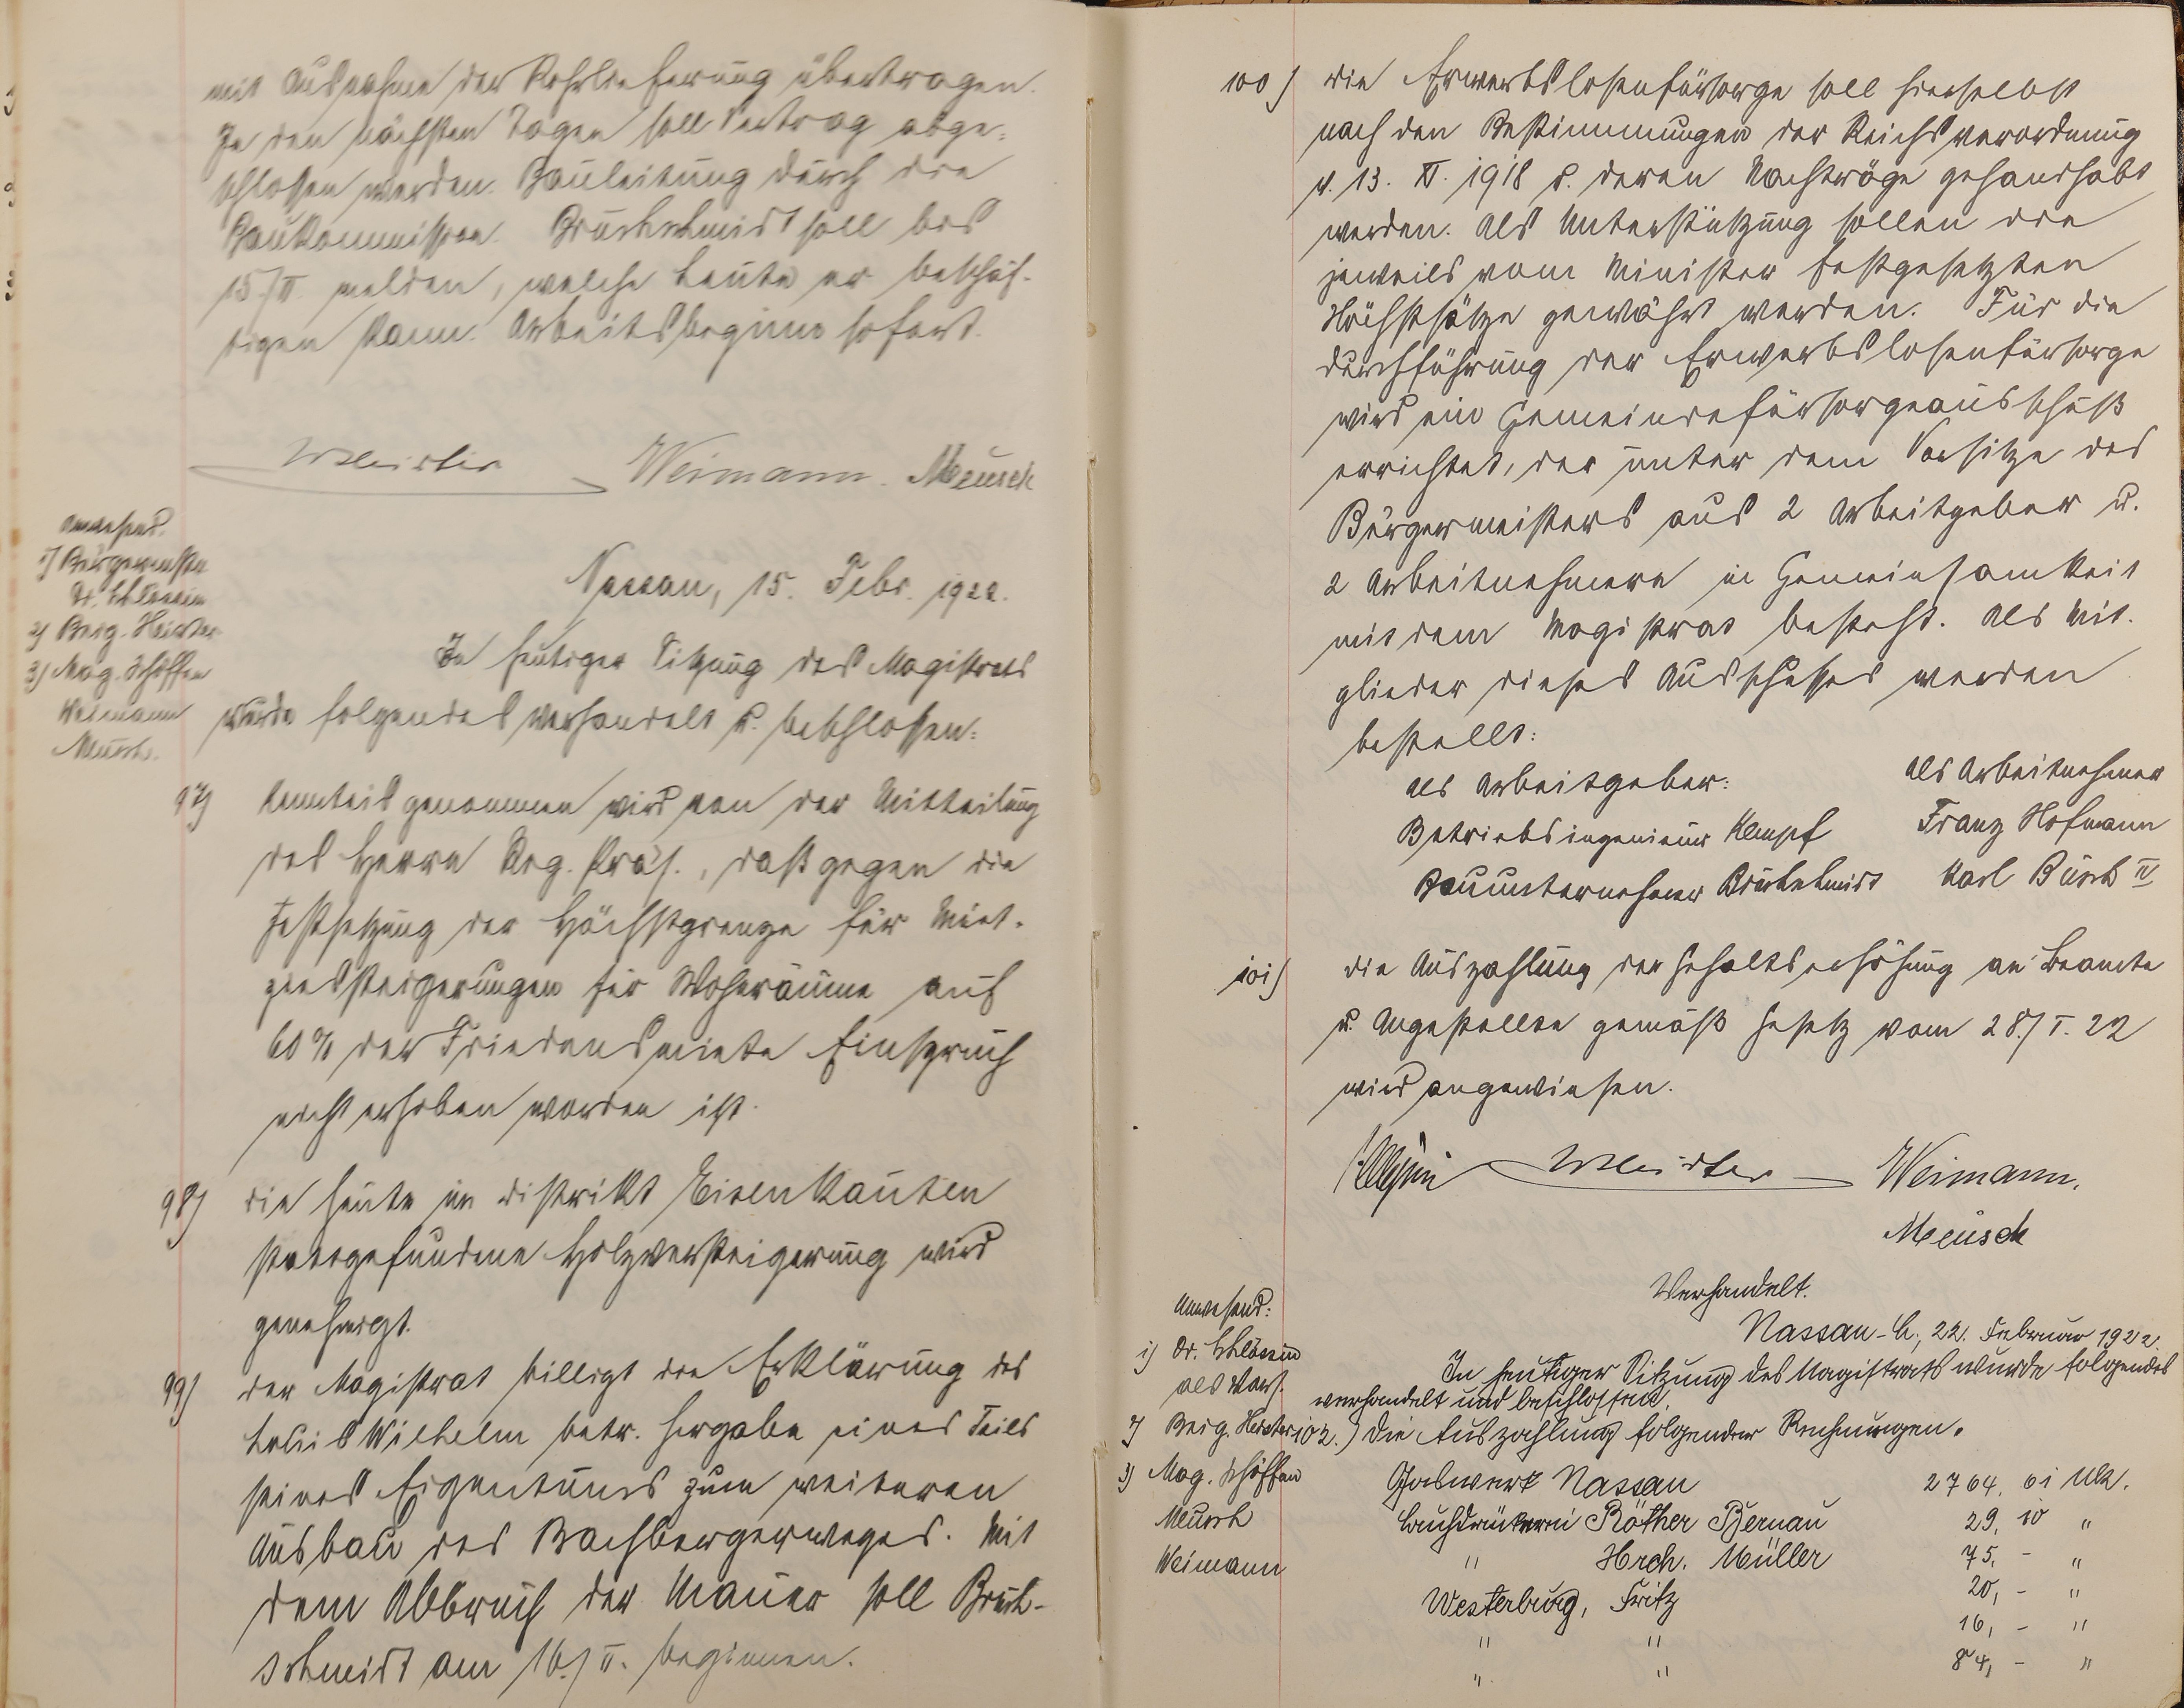 mit Ausnahme der Rohrlieferung übertragen.
In den nächsten Tagen soll Vertrag abge-
schlossen werden. Bauleitung durch die
Baukommission. Bruchschmidt soll bis
15./II. melden, welche Leute er beschäf-
tigen kann. Arbeitsbeginn sofort.
Weimann. Meusch
Anwesend.
1) Bürgermstr.
Dr. Schlössin
2) Beig. Heister
3) Mag. Schöffen
Weimann
Meusch.
Nassau, 15. Febr. 1922.
In heutiger Sitzung des Magistrats
wurde folgendes verhandelt u. beschlossen:
97) Kenntnis genommen wird von der Mitteilung
des Herrn Reg. Präs., daß gegen die
Festsetzung der Höchstgrenze für Miet-
zinssteigerungen für Wohnräume auf
60 % der Friedensmiete Einspruch
nicht erhoben worden ist.
98) die heute im Distrikt Eisenkauten
stattgefundene Holzversteigerung wird
genehmigt.
99) der Magistrat billigt die Erklärung des
Louis Wilhelm betr. Hergabe eines Teils
seines Eigentums zum weiteren
Ausbau des Bachbergerweges. Mit
dem Abbruch der Mauer soll Bruch-
schmidt am 16./II. beginnen.
100) die Erwerbslosenfürsorge soll hierselbst
nach den Bestimmungen der Reichsverordnung
v. 13. XI. 1918 u. deren Nachträge gehandhabt
werden. Als Unterstützung sollen die
jeweils vom Minister festgesetzten
Höchstsätze gewährt werden. Für die
Durchführung der Erwerbslosenfürsorge
wird ein Gemeindefürsorgeausschuß
errichtet, der unter dem Vorsitze des
Bürgermeisters aus 2 Arbeitgeber u.
2 Arbeitnehmern in Gemeinsamkeit
mit dem Magistrat besteht. Als Mit-
glieder dieses Ausschusses werden
bestellt:
als Arbeitgeber: als Arbeitnehmer
Betriebsingenieur Kempf Franz Hofmann
Bauunternehmer Bruchschmidt Karl Busch IV
101) die Auszahlung der Gehaltserhöhung an Beamte
u. Angestellte gemäß Gesetz vom 28./I. 22
wird angewiesen.
Heister Weimann.
Meusch
Verhandelt.
Nassau-L., 22. Februar 1922.
Anwesend:
1) Dr. Schlössin
als Vors.
2) Beig. Heister
3) Mag. Schöffen
Meusch
Weimann
In heutiger Sitzung des Magistrats wurde folgendes
verhandelt und beschlossen.
102.) Die Auszahlung folgender Rechnungen.
Gaswerk Nassau 2764, 01 Mk.
Buchdruckerei Röther Bernau 29, 10 "
" Hrch. Müller 75, - "
Westerburg, Fritz 20, - "
" " 16, - "
" " 84, - "